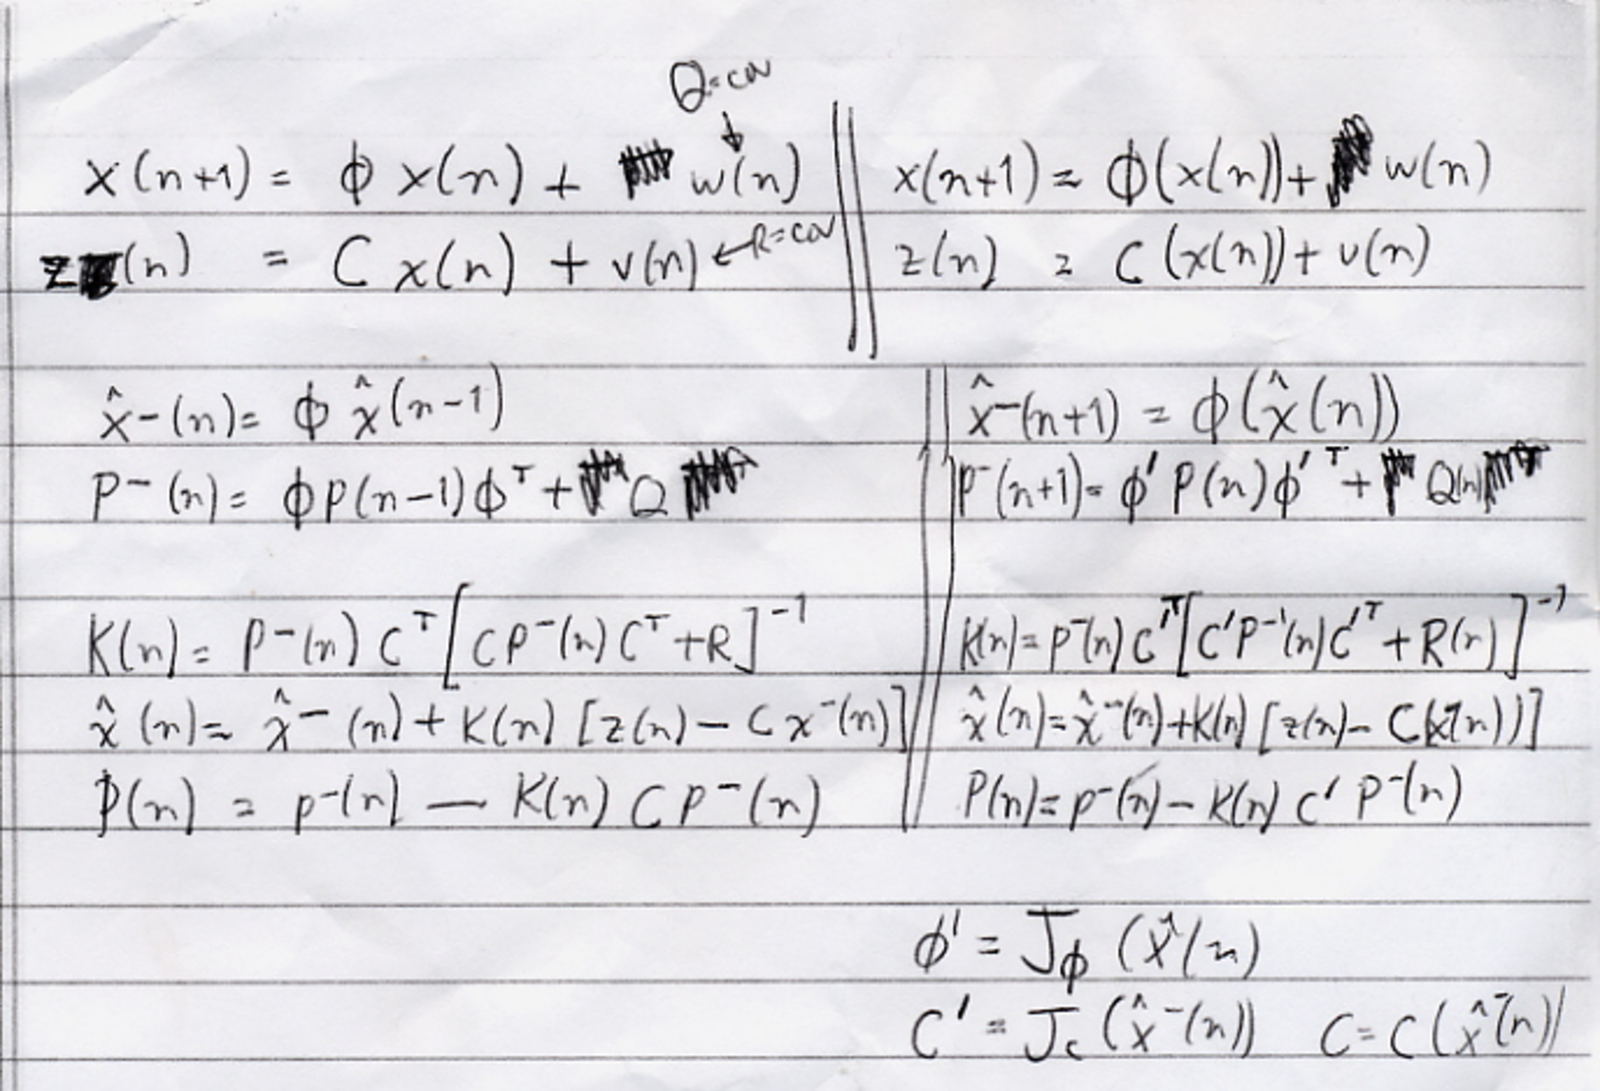 Q=cov
x(n+1) = ϕ x(n) + w(n)
z(n) = C x(n) + v(n) ← R=cov
x(n+1) = ϕ(x(n)) + w(n)
z(n) = C(x(n)) + v(n)
x̂⁻(n) = ϕ x̂(n-1)
P⁻(n) = ϕP(n-1)ϕᵀ + Q
K(n) = P⁻(n) Cᵀ [CP⁻(n)Cᵀ+R]⁻¹
x̂(n) = x̂⁻(n) + K(n) [z(n) - Cx⁻(n)]
P(n) = P⁻(n) - K(n) CP⁻(n)
x̂⁻(n+1) = ϕ(x̂(n))
P⁻(n+1) = ϕ' P(n) ϕ'ᵀ + Q(n)
K(n) = P⁻(n) C'ᵀ [C'P⁻'(n)C'ᵀ + R(n)]⁻¹
x̂(n) = x̂⁻(n) + K(n) [z(n) - C(x⁻(n))]
P(n) = P⁻(n) - K(n) C' P⁻(n)
ϕ' = J_ϕ (x̂(n)
C' = J_c (x̂⁻(n)) C = C(x̂⁻(n))